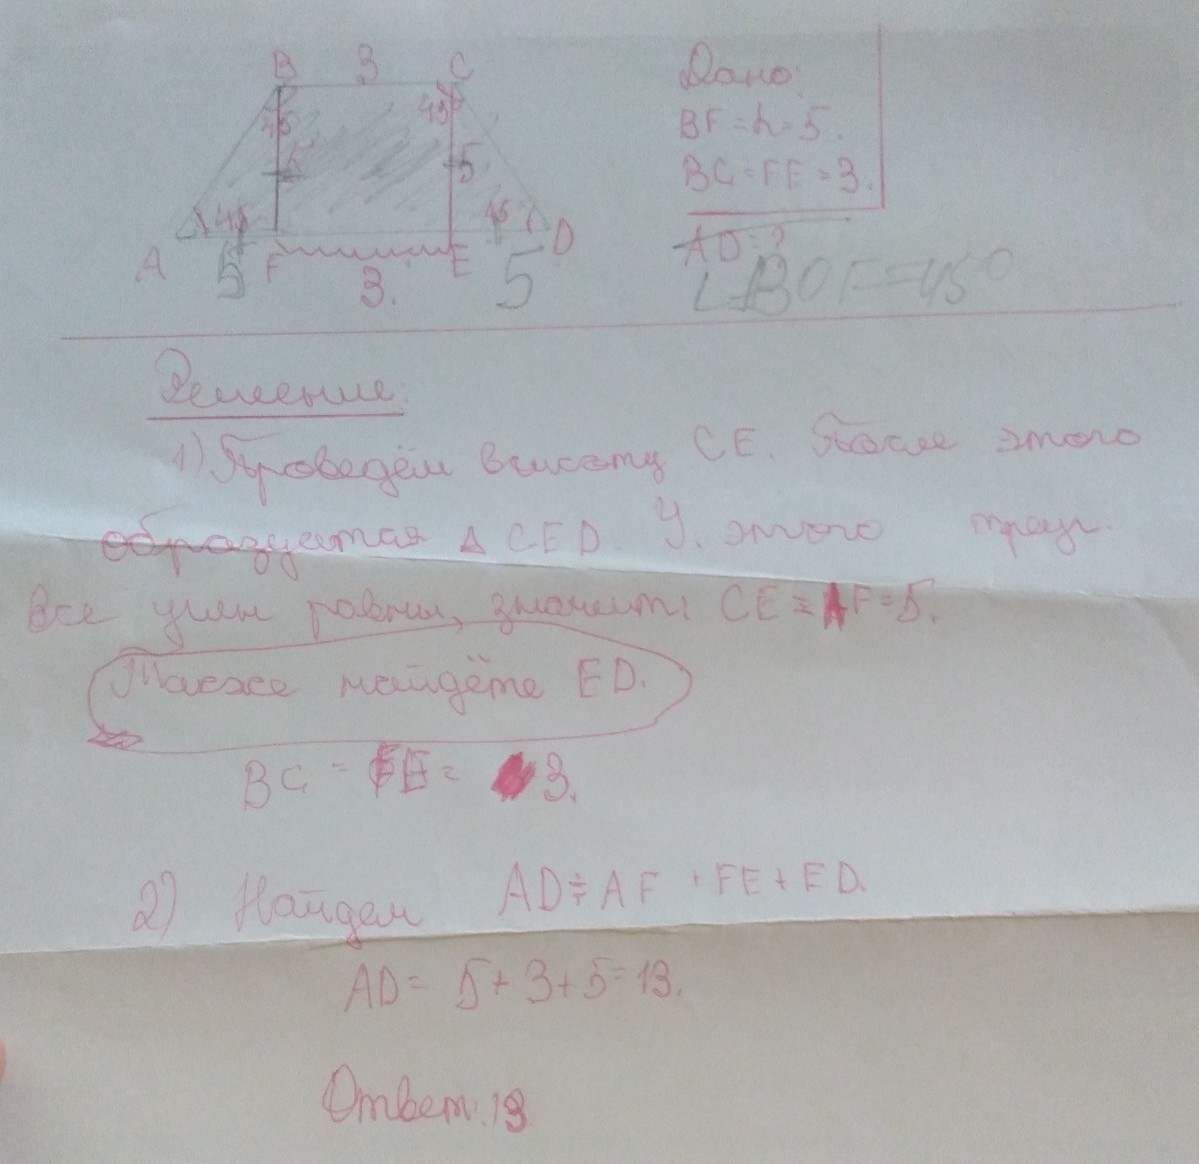 B 3 C
Дано:
45 45
BF = h = 5.
5 5
BC = FE = 3.
45 45
AD = ?
A 5 F E D
3. 5
Решение:
1) Проведём высоту CE. После этого
образуется Δ CED. У этого треуг.
все углы равны, значит: CE = AF = 5.
Также найдёте ED.
BC = FE = 3.
2) Найдем AD = AF + FE + ED.
AD = 5 + 3 + 5 = 13.
Ответ: 13